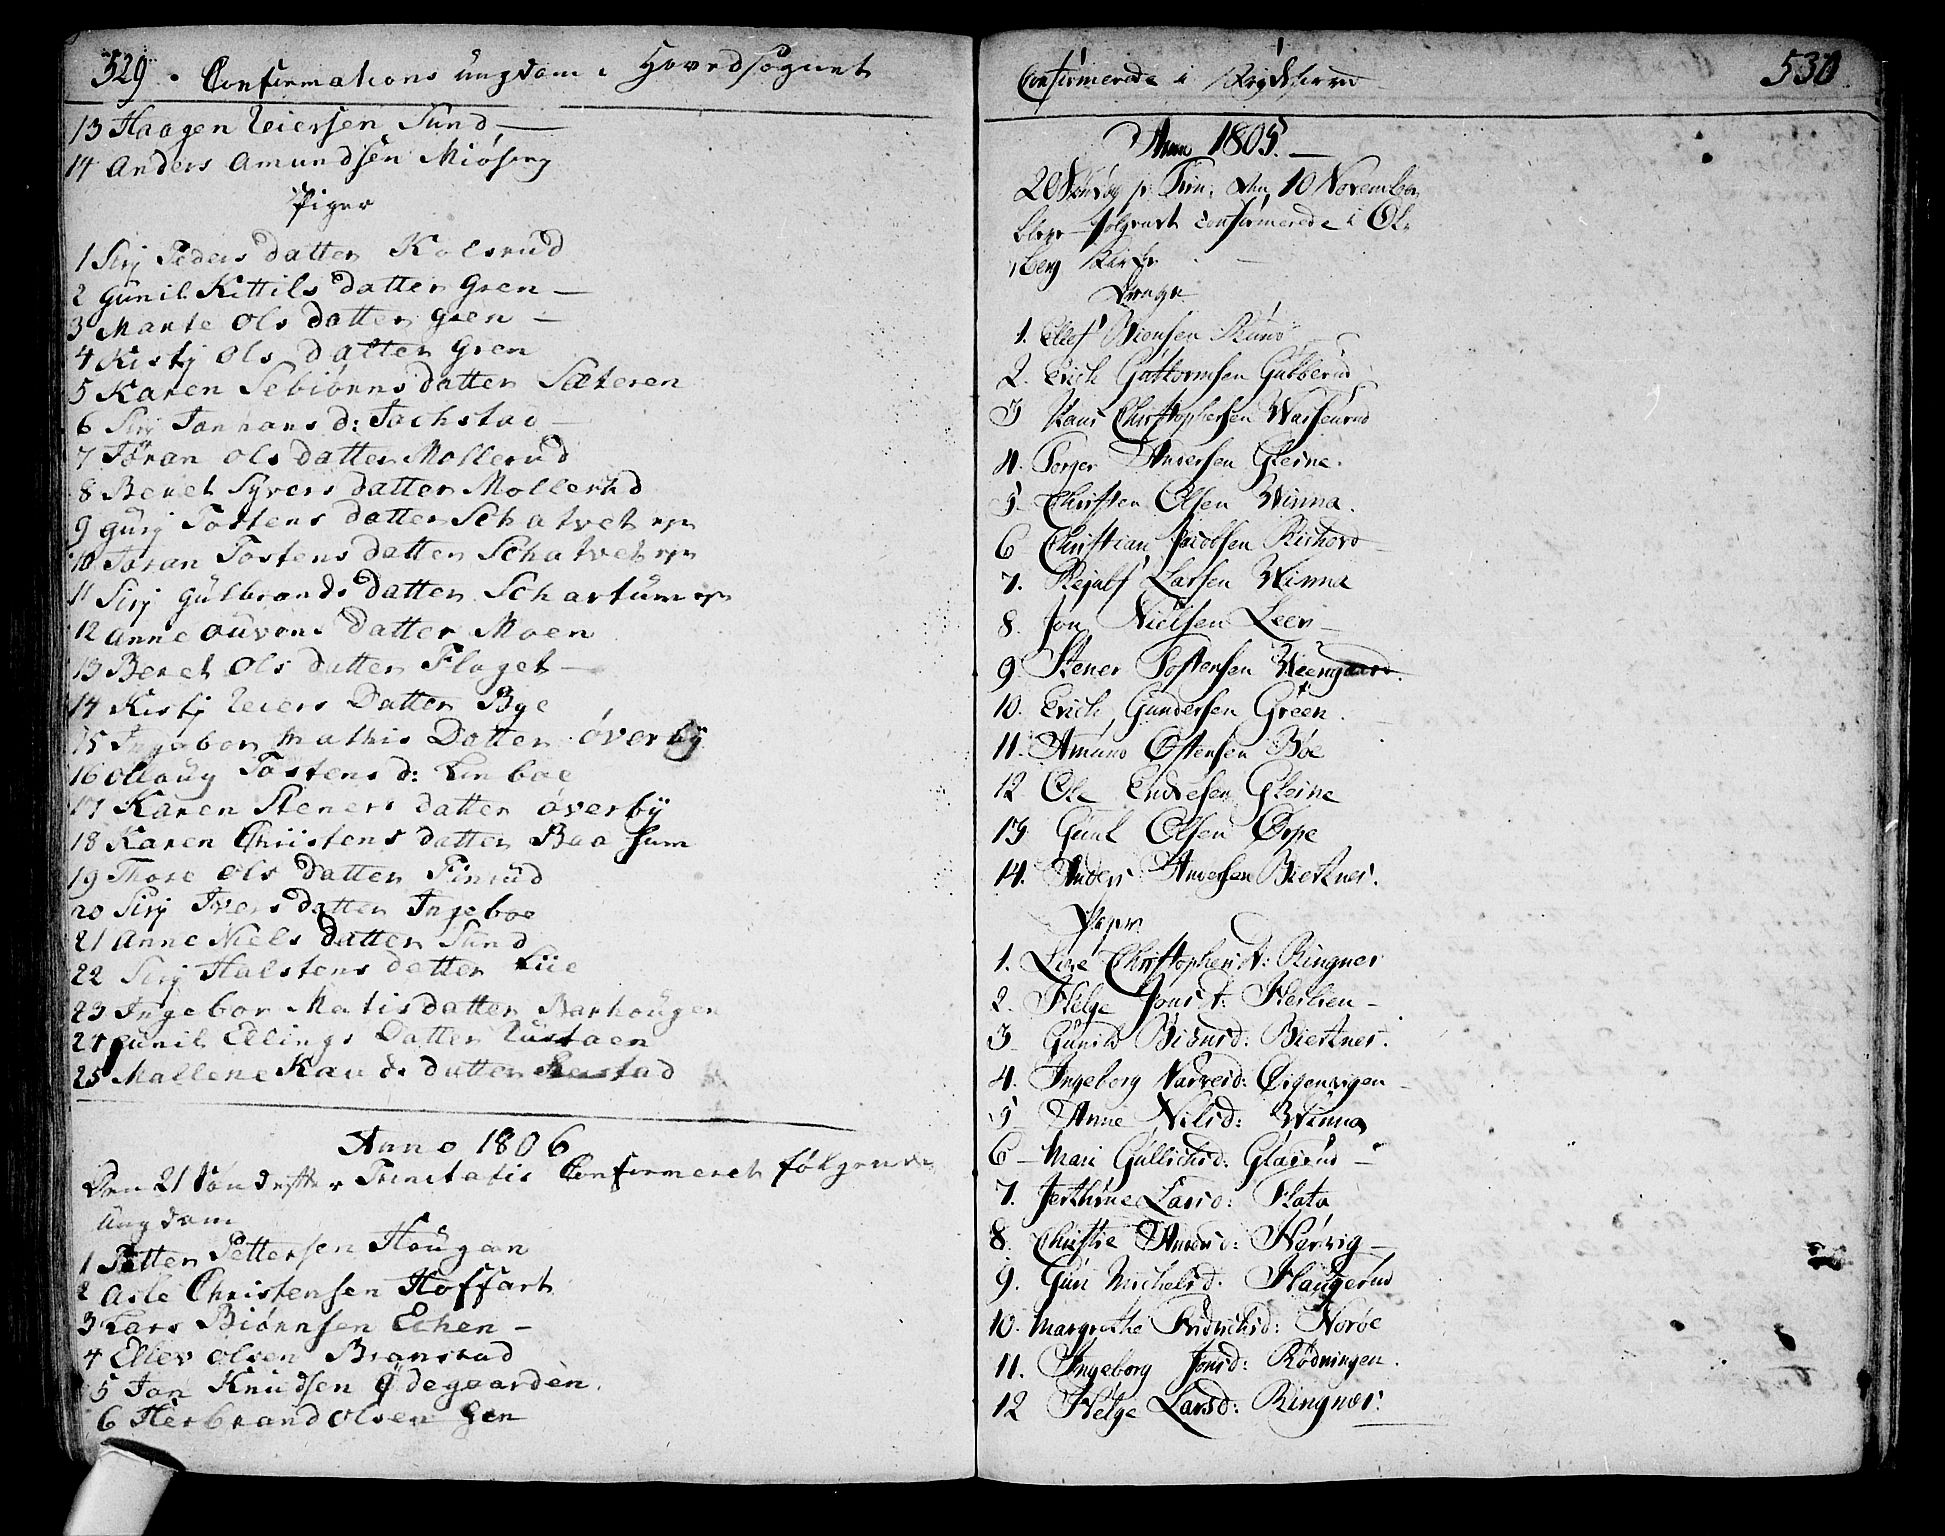 529. Confirmations ungdom i Hovedsognet
13 Haagen Reiersen Sund
14 Anders Amundsen Miøseng
Piger
1 Sirj Peders datter Kolsrud
2 Gunil Kittils datter Gren
3 Marte Ols datter Gren
4 Kistj Ols datter Gren
5 Karen Sebiønns datter Sæteren
6 Sirj Johans d:
7 Jøran Ols datter Mollerud
8 Beret Syvers datter Mollerud
9 Gurj Tostens datter Schatvet
10 Joran Tostens datter Schatvet
11 Sirj Gulbrands datter Schartum
12 Anne ouvens datter Moen
13 Beret Ols datter Flaget
14 Kistj Reiers Datter Bye
15 Ingebor Mathis Datter øverbÿ
16 Olloug Tostens d:
17 Karen Steners datter øverbÿ
18 Karen Christens datter Baasum
19 Thore Ols datter Finrud
20 Sirj Ivers datter Ingeboe
21 Anne Niels datter Sund
22 Sirj Halstens datter Liie
23 Ingebor Matis datter Narhougen
24 Gunil Ellings Datter Rustaen
25 Mallene Knuds datter
Anno 1806
Den 21 Søndag efter Trinitatis Confirmeret følgende
Ungdom
1 Petter Pettersen Hougan
2 Asle Christensen Hoffart
3 Lars Biønnsen Echen
4 Ellev Olsen Bransrud
5 Jon Knudsen Ødegaarden
6 Herbrand Olsen Gren
Confirmerede i 530
Anno 1805.
20 Søndag p: Trin: den 10 November
bleve følgende confirmerede i Ol-
berg Kirke
Drenge
1. Ellef
2. Erich Guttormsen Gulberud
3 Hans Christophersen
4. Torger Andersen Gleine.
5 Christen Olsen Winna.
6 Christian Jacobsen
7. Larsen Winna
8. Jon Nielsen Leer
9. Stener Tostensen Weengaard
10. Erich Gundersen Green
11. Amund Østensen Bøe
12 Ole Endresen Gleine
13 Olsen Ørpe
14. Anders Andersen Biertnes.
Piger
1. Live Christophersd: Ringnes
2. Helge Jonsd:
3 Gunild Biønsd: Biertnes.
4. Ingeborg
5 Anne Nilsd: Winna
6 Mari Gullichsd: Glaserud
7. Larsd: Flata
8. Christie Andersd: Narvig
9. Guri Michelsd: Haugerud
10. Margrethe Fridrichsd: Norøe
11. Ingeborg Jonsd: Rødningen.
12 Helge Larsd: Ringnes.